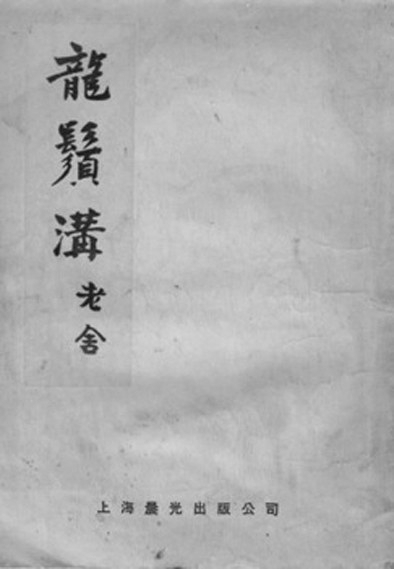 龍鬚溝
老舍
上海晨光出版公司